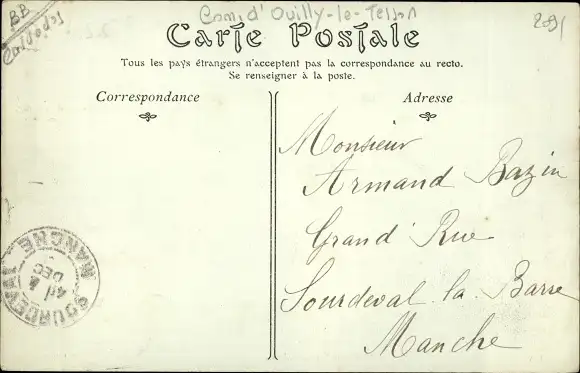 BB
Calvados
Com. d'Ouilly-le-Tesson
Carte Postale
Tous les pays étrangers n'acceptent pas la correspondance au recto.
Se renseigner à la poste.
Correspondance
Adresse
Monsieur
Armand Bazin
Grand' Rue
Sourdeval la Barre
Manche
SOURDEVAL
MANCHE
DEC